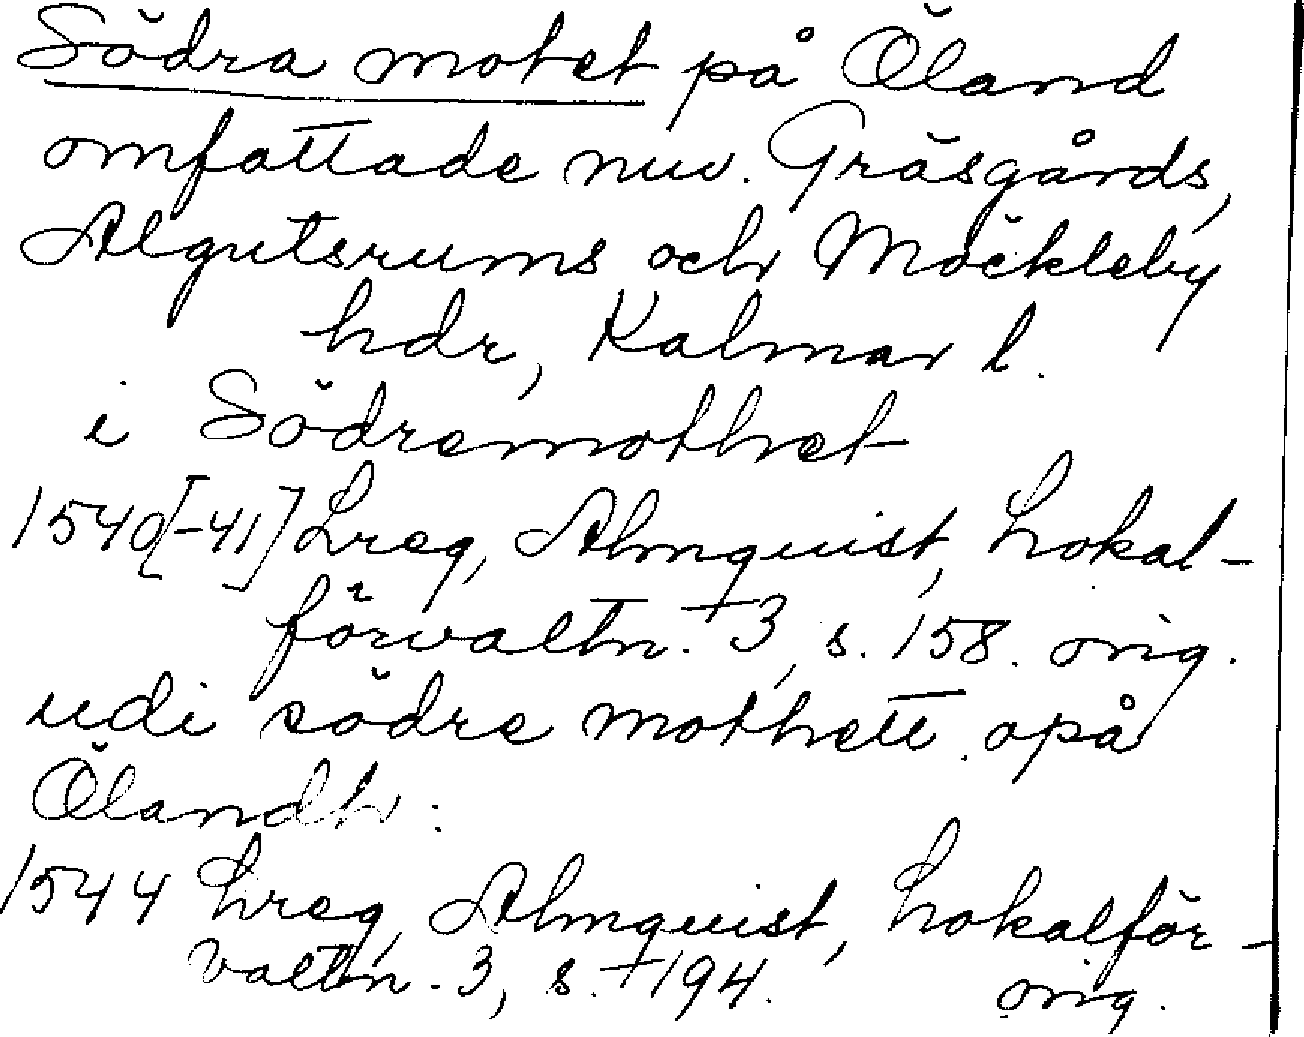 Södra motet på Öland
omfattade nuv. Gräsgårds,
Algutsrums och Möckleby
hdr, Kalmar l.
i Södremothet
1540[-41] Lreg, Almquist, Lokal-
förvaltn. +3, s. 158. orig.
udi södre mothett opå
Ölandh:
1544 Lreg, Almquist, Lokalför-
valtn. 3, s. +194. orig.